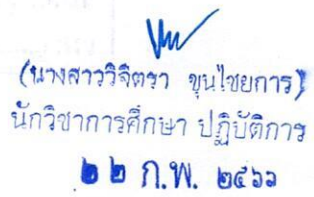 (นางสาววิจิตรา ขุนไชยการ)
นักวิชาการศึกษา ปฏิบัติการ
๒๒ ก.พ. ๒๕๖๖